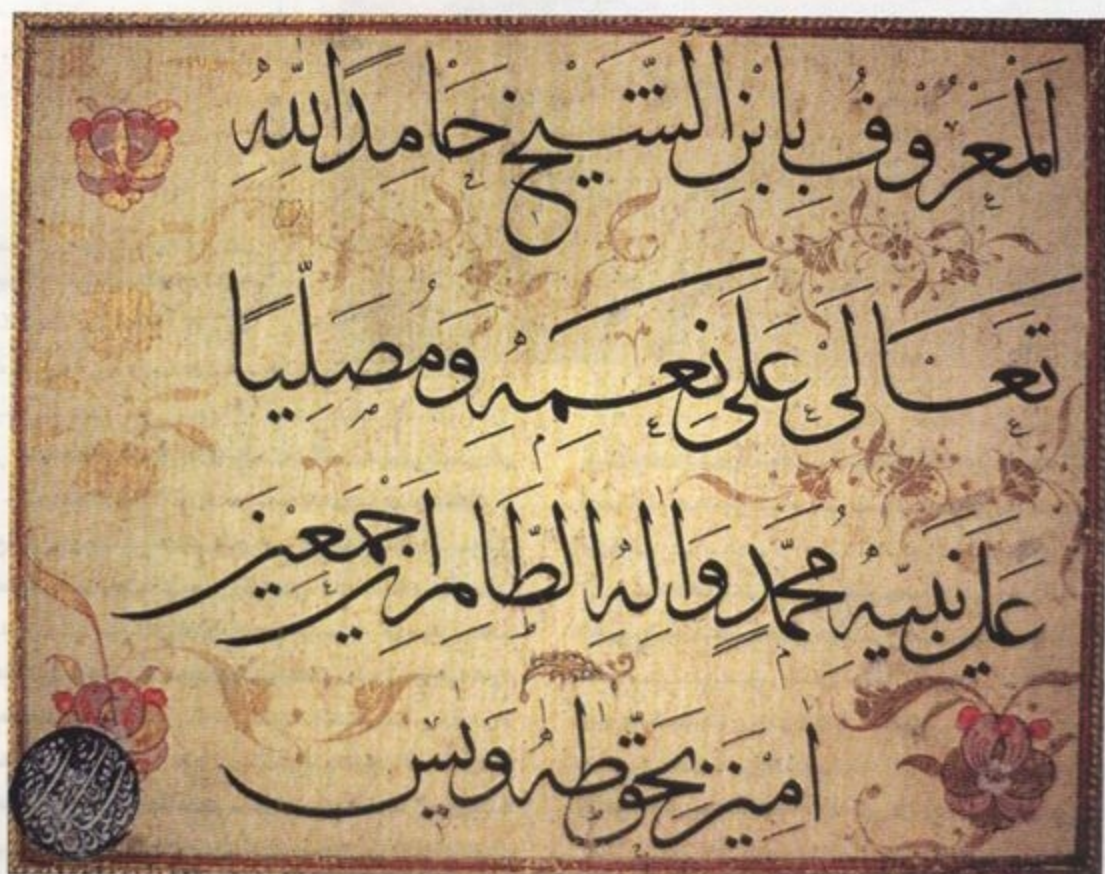 اَلْمَعْرُوفُ بِابْنِ الشَّيْخِ حَامِدًا لِلّٰهِ
تَعَالَىٰ عَلَىٰ نِعَمِهِ وَمُصَلِّيًا
عَلَىٰ نَبِيِّهِ مُحَمَّدٍ وَاٰلِهِ الطَّاهِرِينَ اَجْمَعِينَ
اٰمِينَ بِحَقِّ طٰهٰ وَيٰسٓ